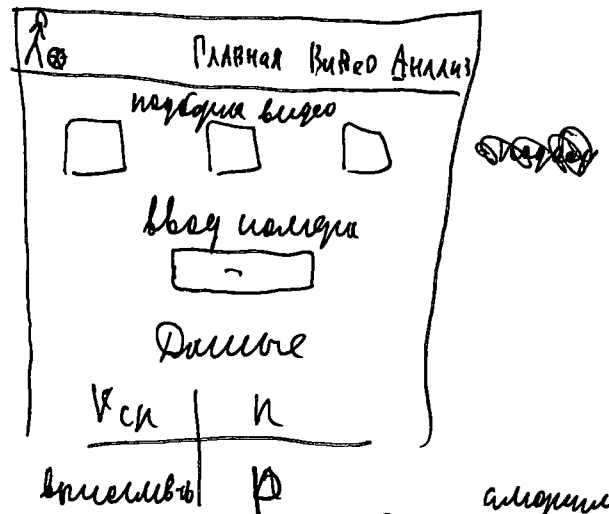 Главная Видео Анализ
подборка видео
Ввод номера
Данные
Vср n